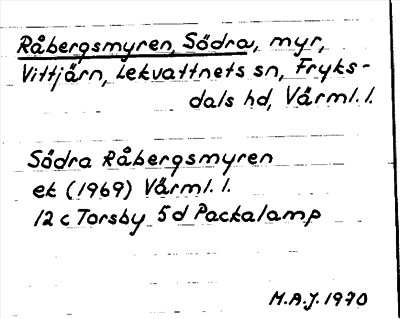 Råbergsmyren, Södra, myr,
Vittjärn, Lekvattnets sn, Fryks-
dals hd, Värml. l.
Södra Råbergsmyren
ek (1969) Värml. l.
12 c Torsby 5d Packalamp
M.A.J. 1970